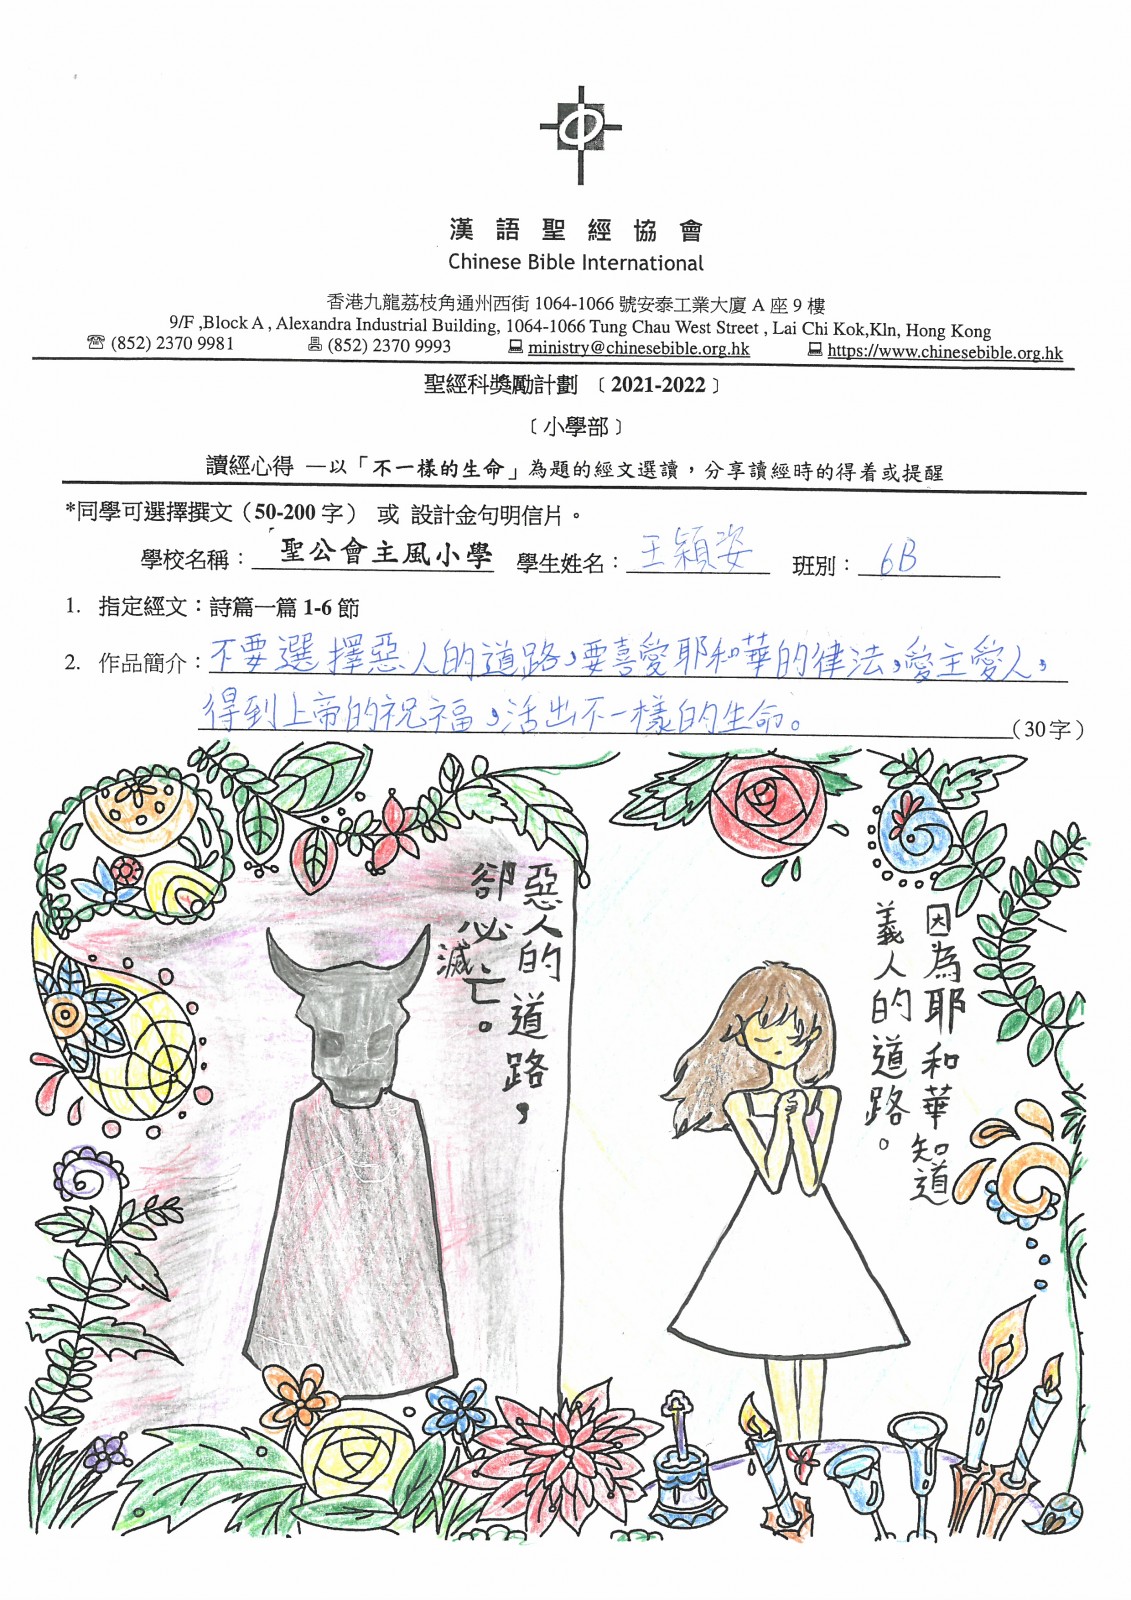 漢語聖經協會
Chinese Bible International
香港九龍荔枝角通州西街 1064-1066 號安泰工業大廈 A 座 9 樓
9/F ,Block A , Alexandra Industrial Building, 1064-1066 Tung Chau West Street , Lai Chi Kok,Kln, Hong Kong
(852) 2370 9981 (852) 2370 9993 ministry@chinesebible.org.hk https://www.chinesebible.org.hk
聖經科獎勵計劃 〔 2021-2022 〕
〔 小學部 〕
讀經心得 —以「不一樣的生命」為題的經文選讀，分享讀經時的得着或提醒
*同學可選擇撰文（50-200 字） 或 設計金句明信片。
學校名稱：聖公會主風小學 學生姓名：王穎姿 班別：6B
1. 指定經文：詩篇一篇 1-6 節
2. 作品簡介：不要選擇惡人的道路，要喜愛耶和華的律法，愛主愛人，
得到上帝的祝福，活出不一樣的生命。（30 字）
因為耶和華知道
義人的道路。
惡人的道路，
卻必滅亡。